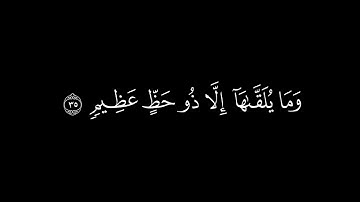 وَمَا يُلَقَّىٰهَآ إِلَّا ذُو حَظٍّ عَظِيمٍ ۝٣٥